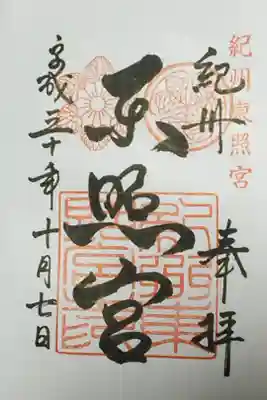 紀州東照宮
奉拝
紀州
東照宮
平成三十年十月七日